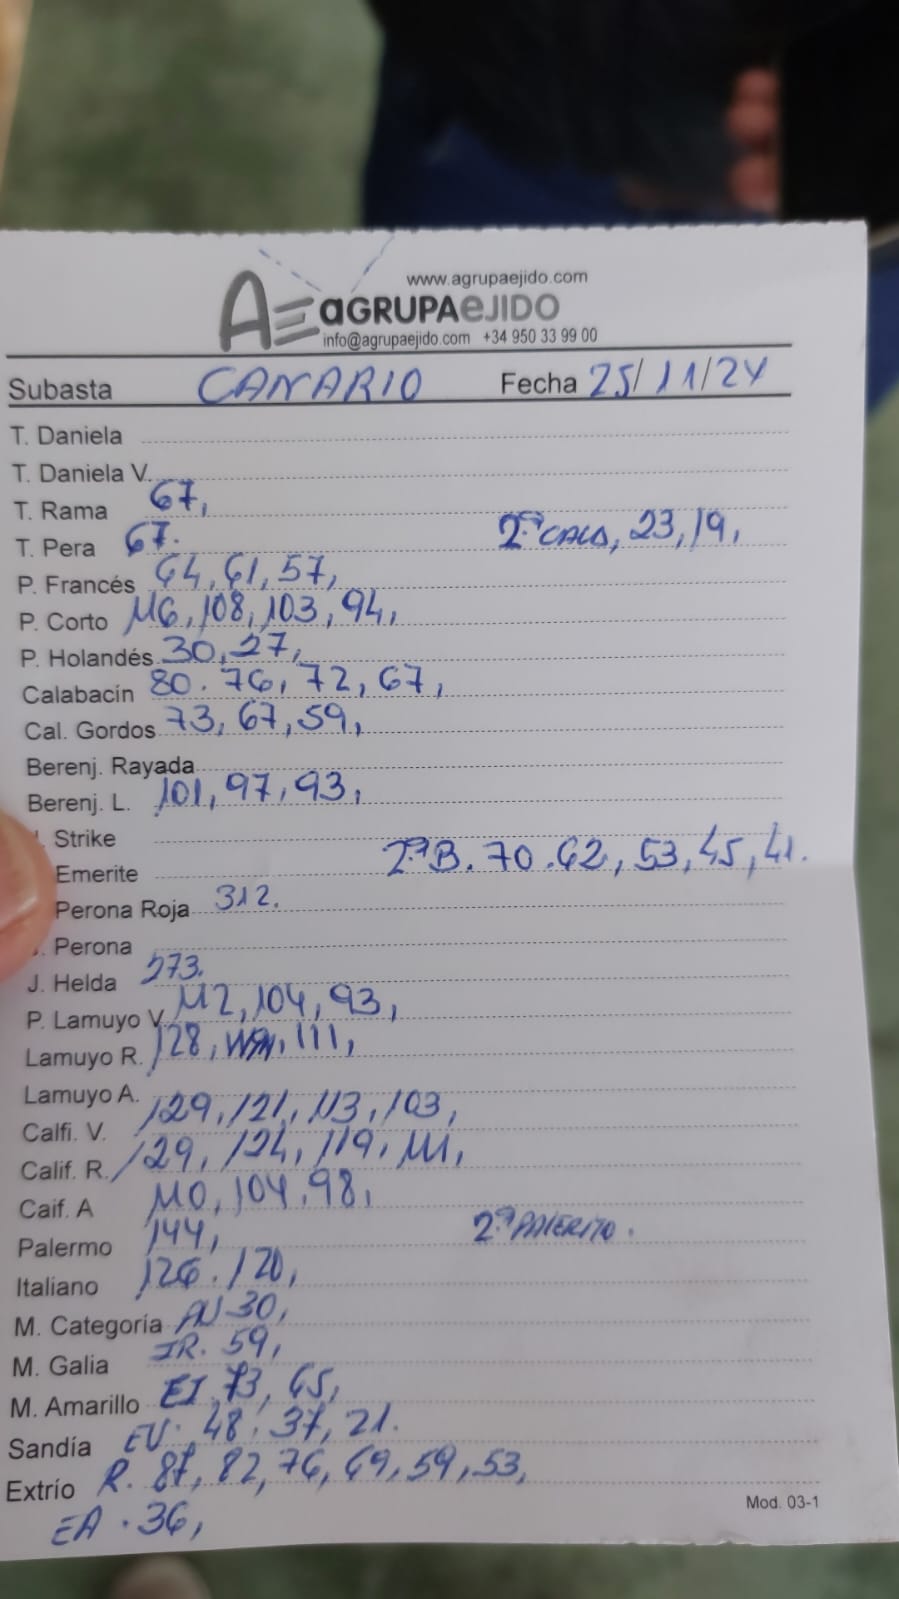 www.agrupaejido.com
AGRUPAEJIDO
info@agrupaejido.com +34 950 33 99 00
Subasta CANARIO Fecha 25/11/24
T. Daniela
T. Daniela V.
T. Rama 67,
T. Pera 67. 2ª CALA, 23, 19,
P. Francés 64, 61, 57,
P. Corto 116, 108, 103, 94,
P. Holandés 30, 27,
Calabacín 80. 76, 72, 67,
Cal. Gordos 73, 67, 59,
Berenj. Rayada
Berenj. L. 101, 97, 93,
Strike
Emerite 2ª B. 70. 62, 53, 45, 41.
Perona Roja 312.
Perona
J. Helda 273.
P. Lamuyo V. 112, 104, 93,
Lamuyo R. 128, 111,
Lamuyo A.
Calfi. V. 129, 121, 113, 103,
Calif. R. 129, 124, 119, 111,
Caif. A 110, 104, 98,
Palermo 144, 2ª PALERMO.
Italiano 126. 120,
M. Categoría 30,
M. Galia IR. 59,
M. Amarillo EI 73, 65,
Sandía EV. 48. 37, 21.
Extrío R. 87, 82, 76, 69, 59, 53,
EA. 36,
Mod. 03-1